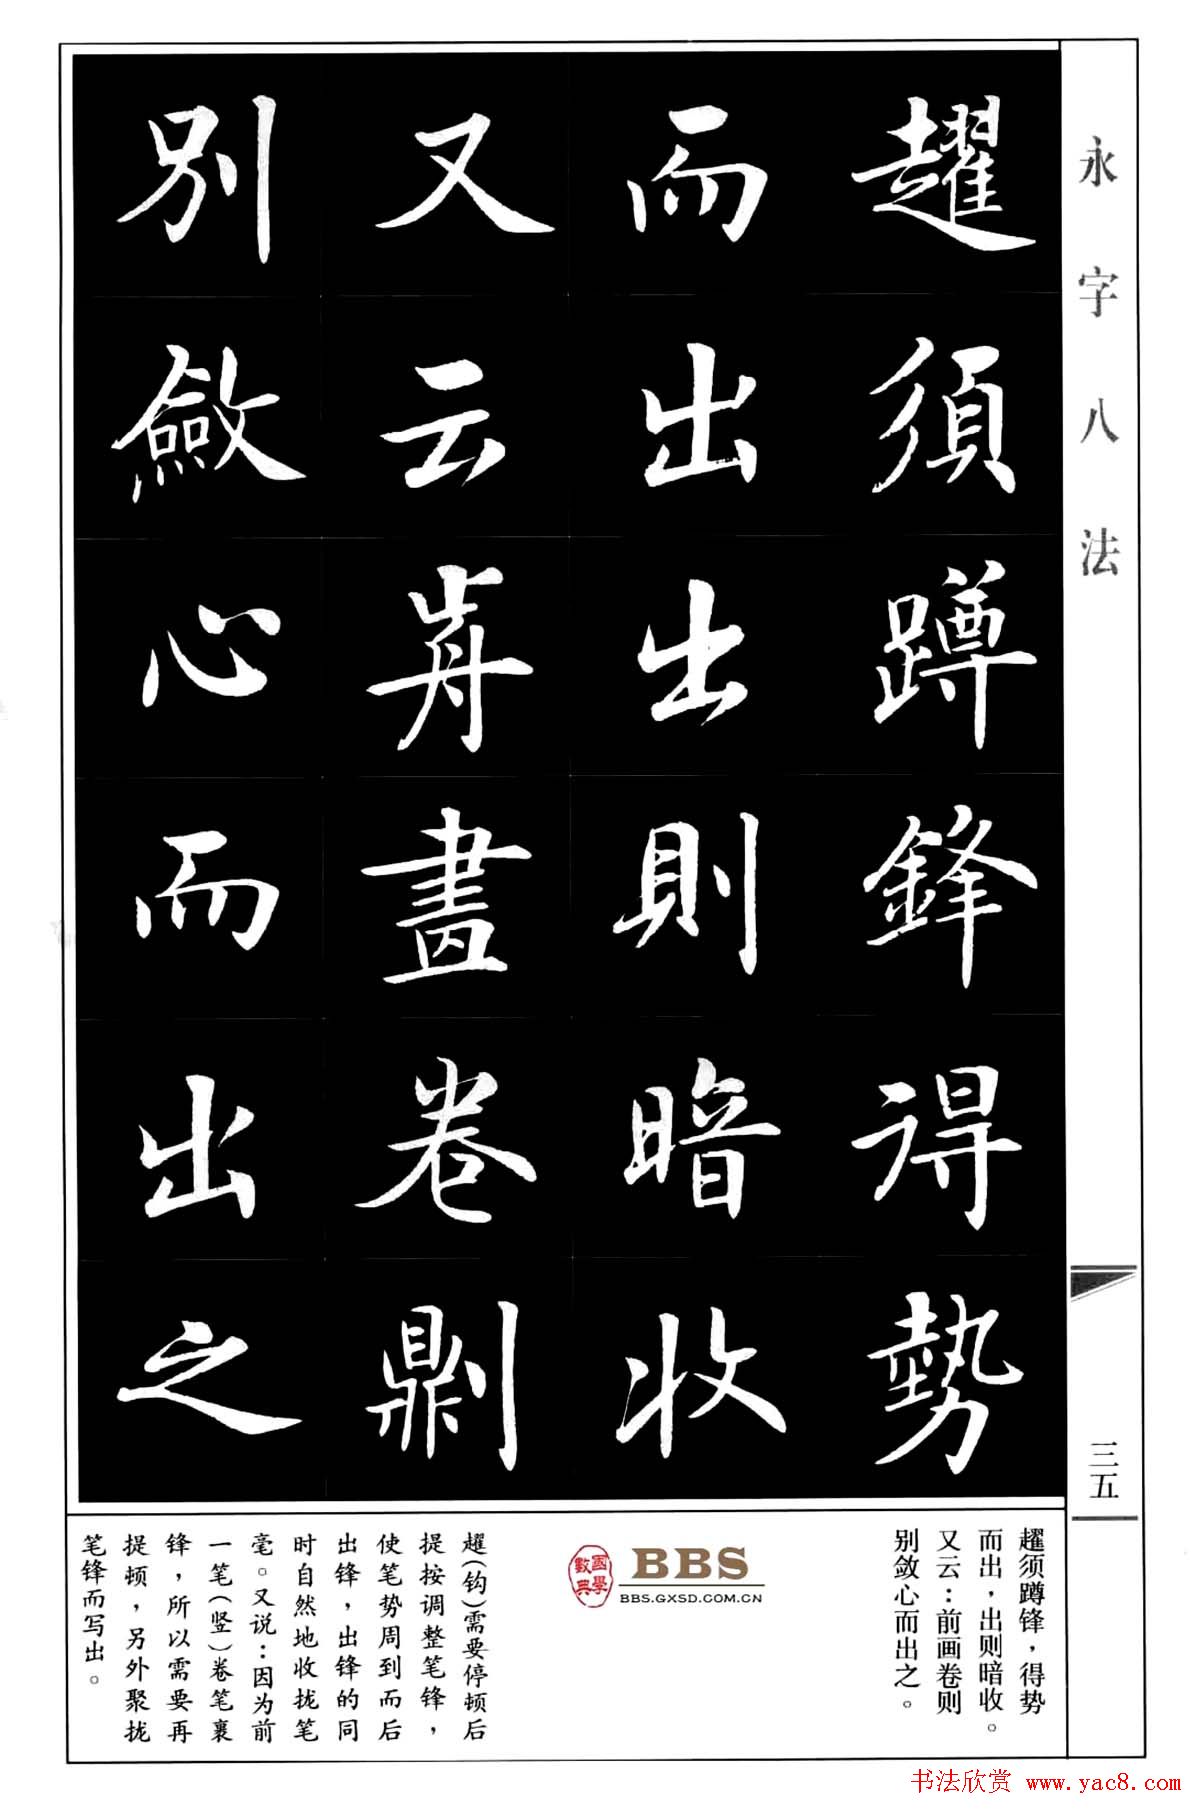 永字八法
趯須蹲鋒得勢
而出出則暗收
又云歬畫卷劓
別斂心而出之
三五
趯须蹲锋，得势
而出，出则暗收。
又云：前画卷则
别敛心而出之。
國學
數典
BBS
BBS.GXSD.COM.CN
趯（钩）需要停顿后
提按调整笔锋，
使笔势周到而后
出锋，出锋的同
时自然地收拢笔
毫。又说：因为前
一笔（竖）卷笔裹
锋，所以需要再
提顿，另外聚拢
笔锋而写出。
书法欣赏 www.yac8.com